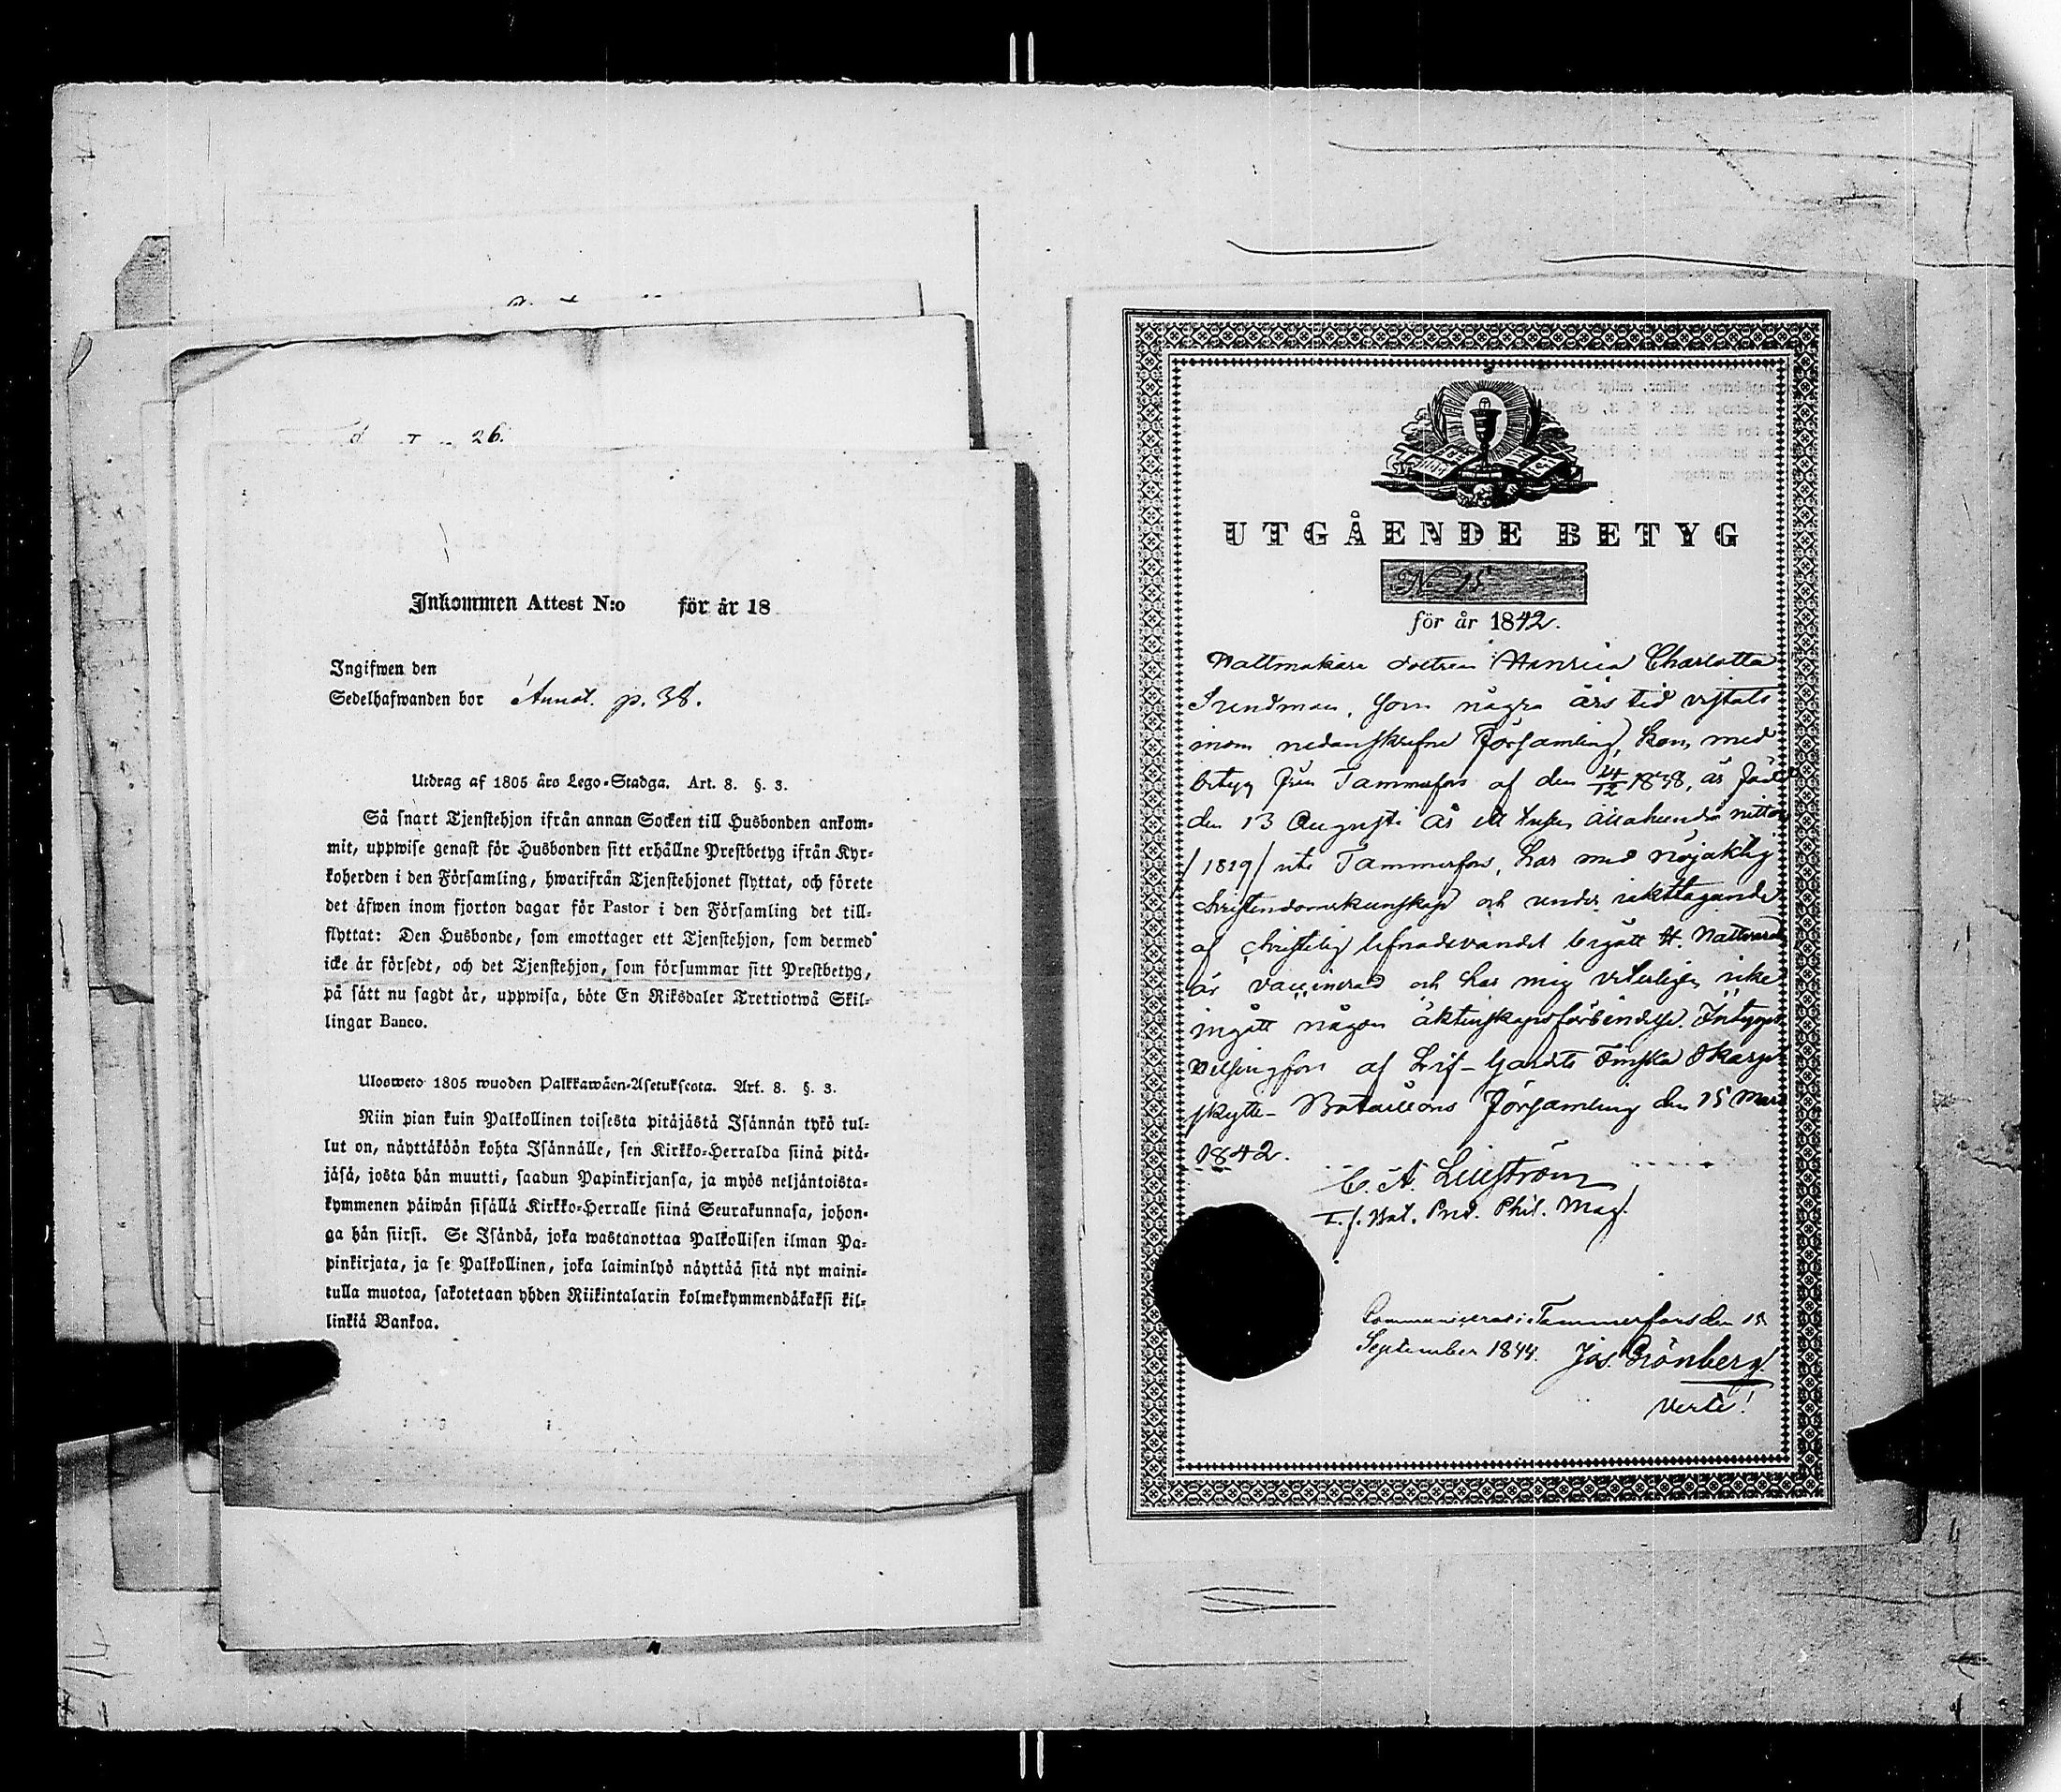 26.
Inkommen Attest N:o för år 18
Ingifwen den
Sedelhafwanden bor Annal. p. 38.
Utdrag af 1805 års Lego-Stadga. Art. 8. §. 3.
Så snart Tjenstehjon ifrån annan Socken till Husbonden ankom-
mit, uppwise genast för Husbonden sitt erhållne Prestbetyg ifrån Kyr-
koherden i den Församling, hwarifrån Tjenstehjonet flyttat, och förete
det äfwen inom fjorton dagar för Pastor i den Församling det till-
flyttat: Den Husbonde, som emottager ett Tjenstehjon, som dermed
icke är försedt, och det Tjenstehjon, som försummar sitt Prestbetyg,
på sätt nu sagdt är, uppwisa, böte En Riksdaler Trettiotwå Skil-
lingar Banco.
Ulosweto 1805 wuoden Palkkawäen-Asetuksesta. Art. 8. §. 3.
Niin pian kuin Palkollinen toisesta pitäjästä Isännän tykö tul-
lut on, näyttäköön kohta Isännälle, sen Kirkko-Herralda siinä pitä-
jäsä, josta hän muutti, saadun Papinkirjansa, ja myös neljäntoista-
kymmenen päiwän sisällä Kirkko-Herralle siinä Seurakunnasa, johon-
ga hän siirsi. Se Isändä, joka wastanottaa Palkollisen ilman Pa-
pinkirjata, ja se Palkollinen, joka laiminlyö näyttää sitä nyt maini-
tulla muotoa, sakotetaan yhden Riikintalarin kolmekymmendäkaksi kil-
linkiä Bankoa.
UTGÅENDE BETYG
No 15
för år 1842.
Wallmakare dottren Henrica Charlotta
som några års tid vistats
inom nedanskrefne Församling, kom, med
betyg från Tammerfors af den 24/12 1838, är född
den 13 Augusti år ett tusen åttahundra nitton
/1819/ uti Tammerfors, har med nöjaktig
christendomskunskap och under iakttagande
af christelig lefnadsvandel begått H. Nattvard
är vaccinerad och har mig veterligen icke
ingått någon äktenskapsförbindelse. Intygas
Helsingfors af Lif-Gardets Finska Skarp-
skytte-Bataillons Församling den 15 Mars
1842.
C. A. Liliström
T. f. Bat. Pred. Phil. Mag.
Communicerat i Tammerfors den 15
September 1844. Jos. Grönberg
Verte!